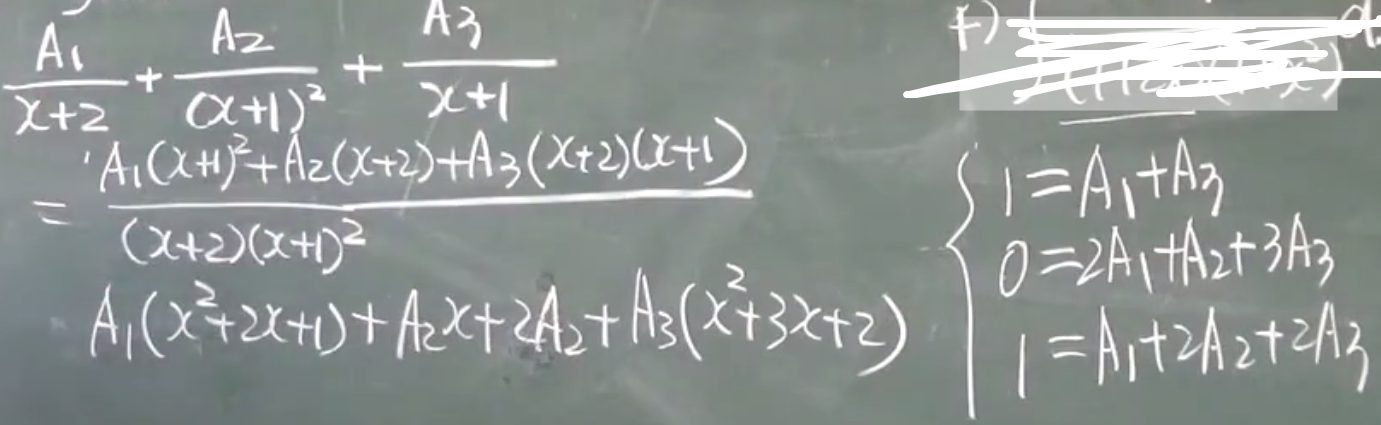 A₁/(x+2) + A₂/(x+1)² + A₃/(x+1)
= (A₁(x+1)²+A₂(x+2)+A₃(x+2)(x+1))/((x+2)(x+1)²)
A₁(x²+2x+1)+A₂x+2A₂+A₃(x²+3x+2)
{ 1=A₁+A₃
0=2A₁+A₂+3A₃
1=A₁+2A₂+2A₃